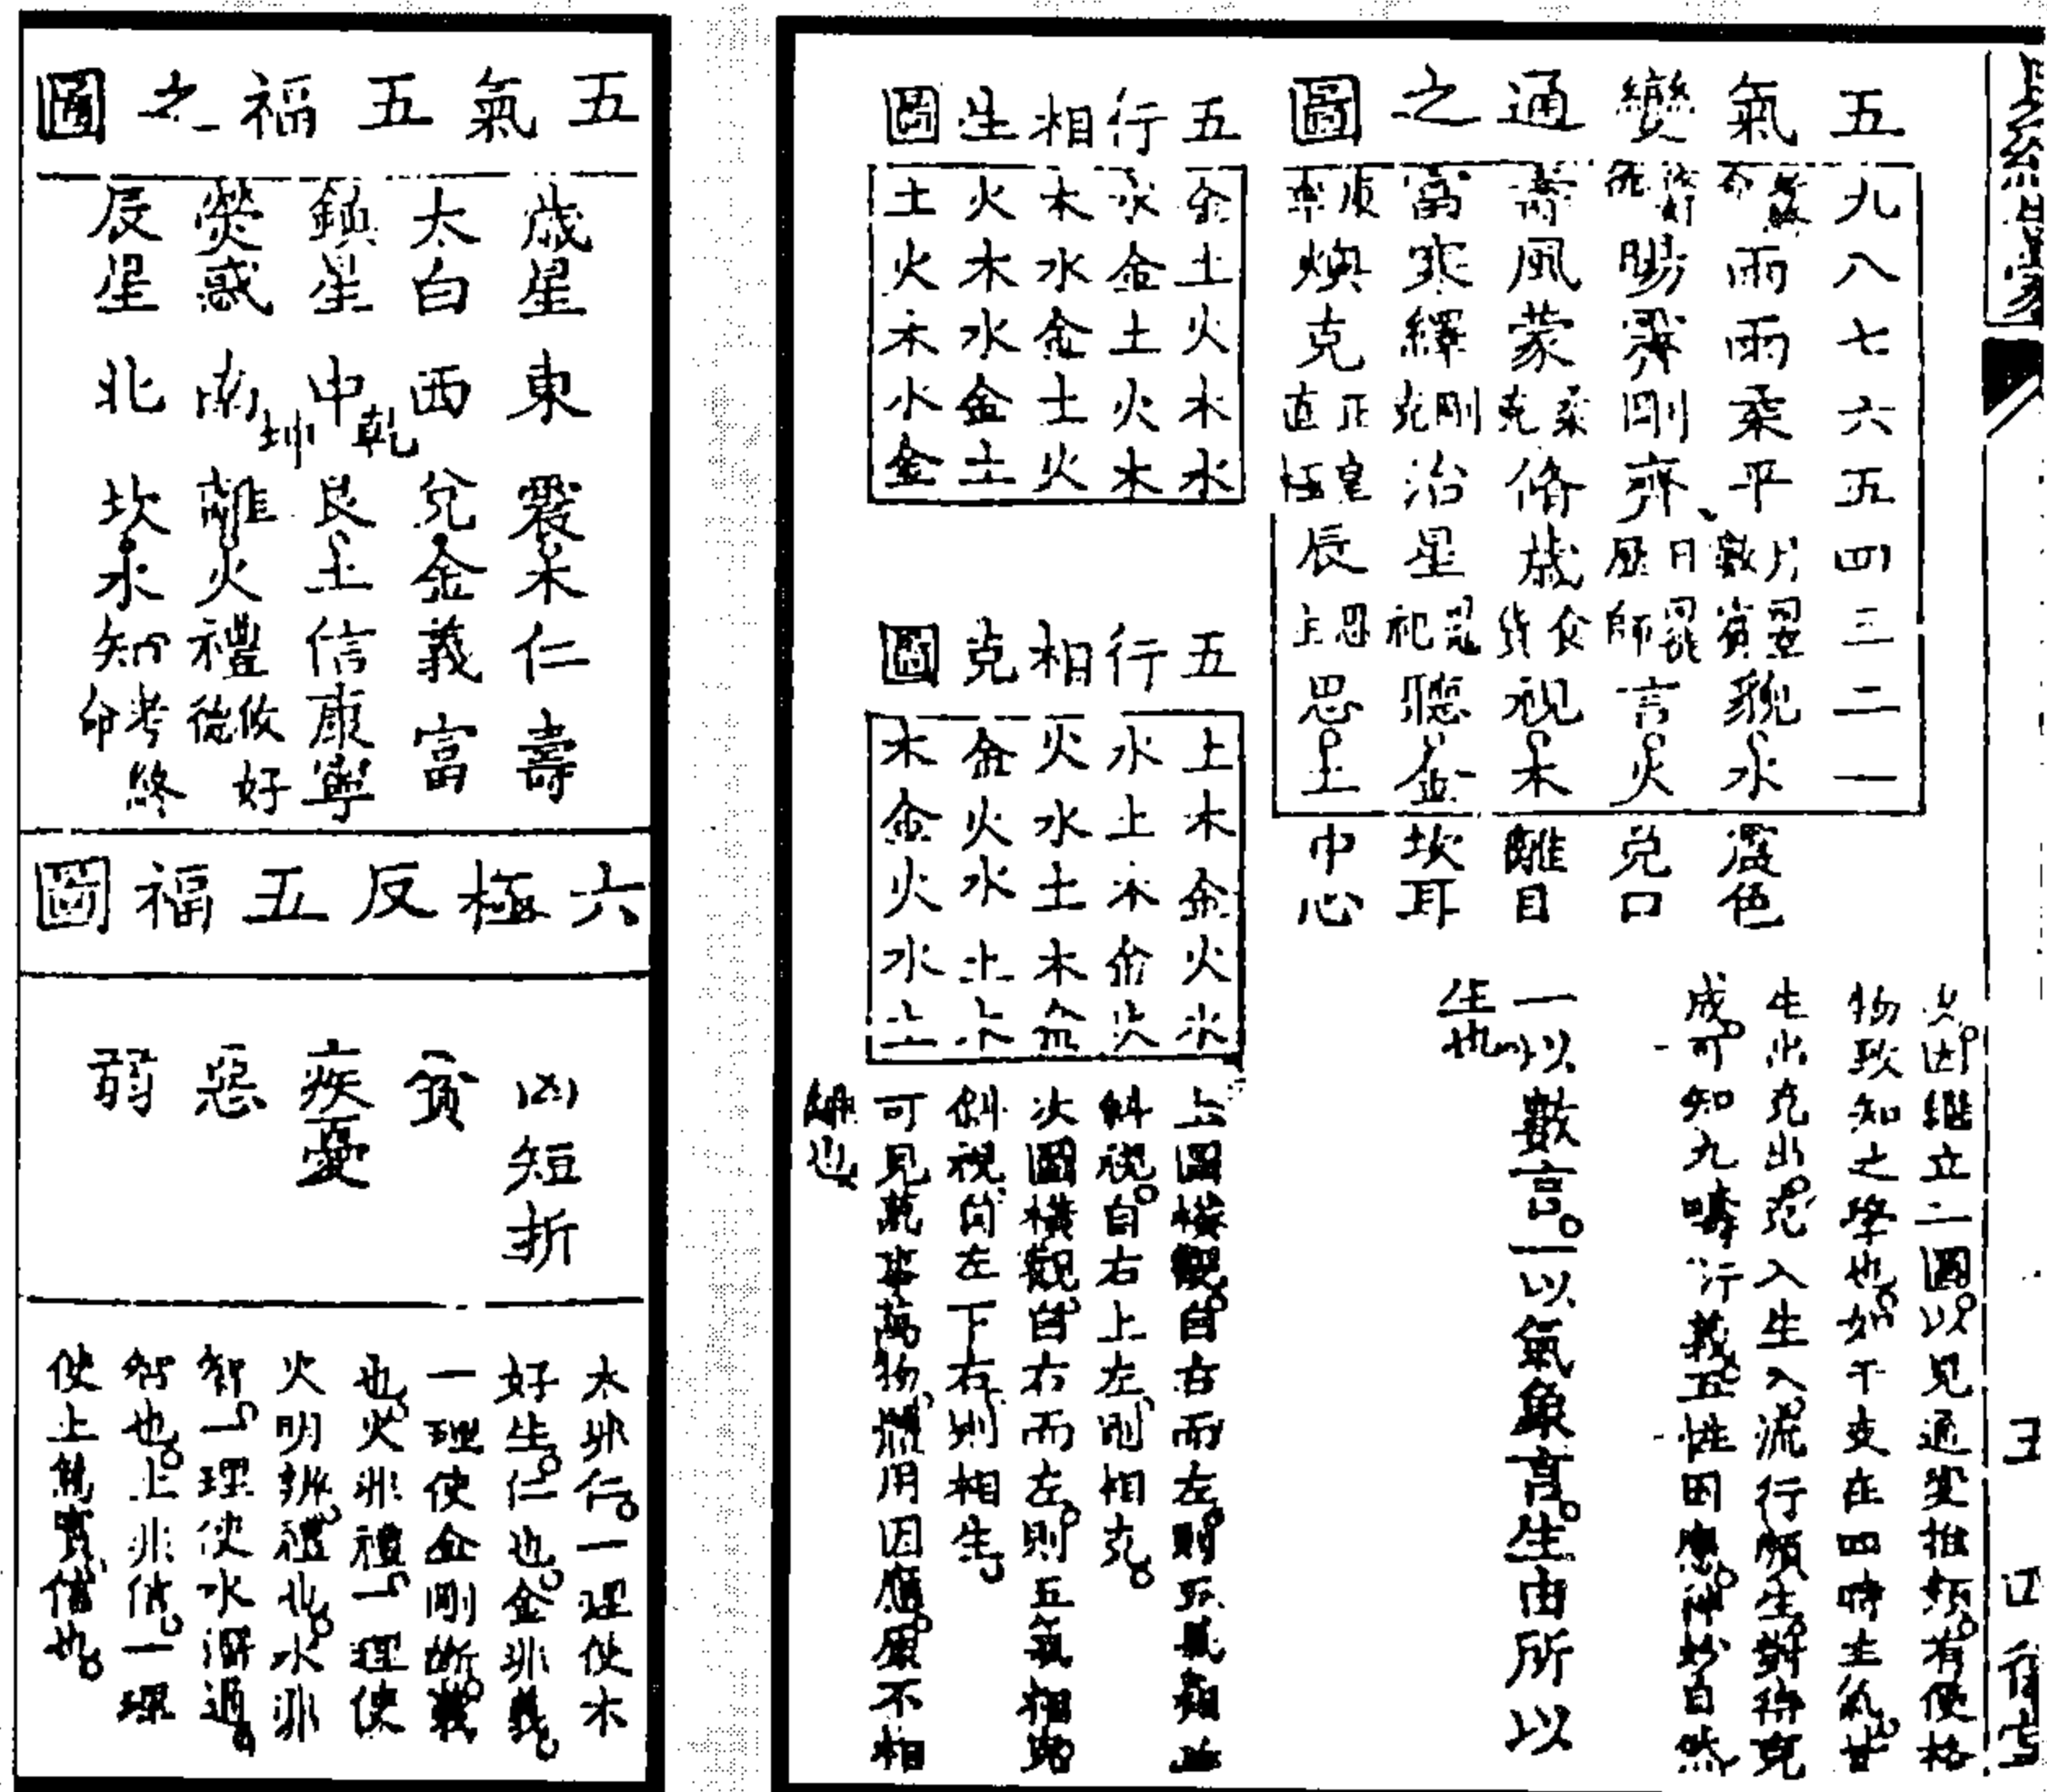 五氣變通之圖
九八七六五四三二一
雨雨柔平
貌水
暘霽剛齊
言火
壽風蒙柔克脩歲食貨視木
富寒繹剛克治星司寇祀聽金
燠克正直皇極辰思土
震色
兌口
離目
坎耳
中心
五行相生圖
金土火木水
水金土火木
木水金土火
火木水金土
土火木水金
五行相克圖
土木金火水
水土木金火
火水土木金
金火水土木
木金火水土
因繼立二圖以見通變推類有便格
物致知之學也如干支在四時生氣
生出克出克入生入流行順生對待克
成可知九疇行義五性因應神妙自然
一以數言一以氣象言生由所以
生也
上圖橫觀自右而左則五氣相
斜視自右上左則相克
次圖橫觀自右而左則五氣相
斜視自左下右則相生
可見萬事萬物體用因應原不相
離也
五氣五福之圖
歲星東震木仁壽
太白西兌金義富
乾
鎮星中艮土信康寧
坤
熒惑南離火禮攸好德
辰星北坎水知考終命
六極反五福圖
凶短折
貧
疾憂
惡
弱
木非仁一理使木
好生仁也金非義
一理使金剛斷義
也火非禮一理使
火明辨禮也水非
智一理使水潤通
智也土非信一理
使土篤實信也